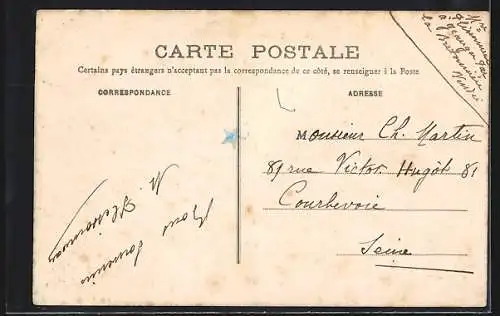 CARTE POSTALE
Certains pays étrangers n'acceptant pas la correspondance de ce côté, se renseigner à la Poste
CORRESPONDANCE
ADRESSE
Monsieur Ch. Martin
89 rue Victor Hugot 81
Courbevoie
Seine
Bons Souvenirs
la Bretonnière
Vendée